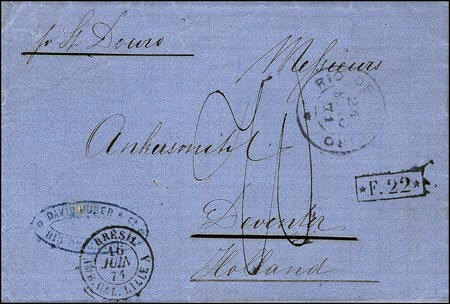 pr St. Douro
Messieurs
RIO DE
24
71
Ankersmit
*F. 22*
Deventer
Holland
DAVID HUBER & Co
RIO DE
BRÉSIL
16
JUIN
71
LILLE